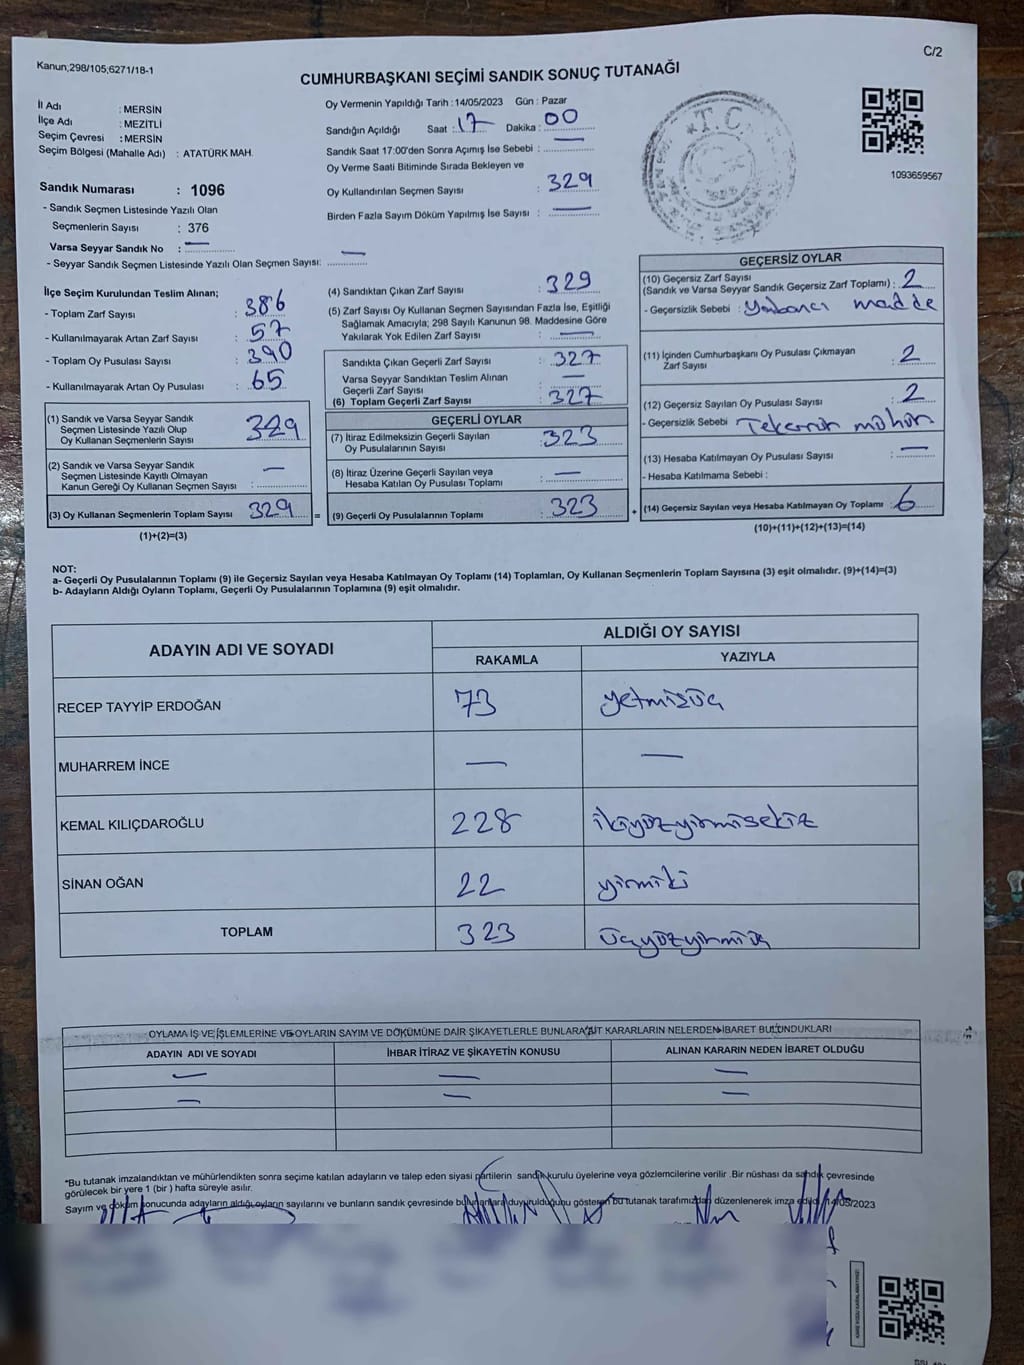 C/2
Kanun;298/105;6271/18-1
CUMHURBAŞKANI SEÇİMİ SANDIK SONUÇ TUTANAĞI
İl Adı : MERSİN
İlçe Adı : MEZİTLİ
Seçim Çevresi : MERSİN
Seçim Bölgesi (Mahalle Adı) : ATATÜRK MAH.
Sandık Numarası : 1096
- Sandık Seçmen Listesinde Yazılı Olan
Seçmenlerin Sayısı : 376
Varsa Seyyar Sandık No : —
- Seyyar Sandık Seçmen Listesinde Yazılı Olan Seçmen Sayısı: —
Oy Vermenin Yapıldığı Tarih : 14/05/2023 Gün : Pazar
Sandığın Açıldığı Saat : 17 Dakika : 00
Sandık Saat 17:00'den Sonra Açımış İse Sebebi : —
Oy Verme Saati Bitiminde Sırada Bekleyen ve
Oy Kullandırılan Seçmen Sayısı : 329
Birden Fazla Sayım Döküm Yapılmış İse Sayısı : —
T.C.
1093659567
İlçe Seçim Kurulundan Teslim Alınan;
- Toplam Zarf Sayısı : 386
- Kullanılmayarak Artan Zarf Sayısı : 57
- Toplam Oy Pusulası Sayısı : 390
- Kullanılmayarak Artan Oy Pusulası : 65
(1) Sandık ve Varsa Seyyar Sandık
Seçmen Listesinde Yazılı Olup
Oy Kullanan Seçmenlerin Sayısı 329
(2) Sandık ve Varsa Seyyar Sandık
Seçmen Listesinde Kayıtlı Olmayan
Kanun Gereği Oy Kullanan Seçmen Sayısı : —
(3) Oy Kullanan Seçmenlerin Toplam Sayısı 329 =
(1)+(2)=(3)
(4) Sandıktan Çıkan Zarf Sayısı : 329
(5) Zarf Sayısı Oy Kullanan Seçmen Sayısından Fazla İse, Eşitliği
Sağlamak Amacıyla; 298 Sayılı Kanunun 98. Maddesine Göre
Yakılarak Yok Edilen Zarf Sayısı : —
Sandıkta Çıkan Geçerli Zarf Sayısı : 327
Varsa Seyyar Sandıktan Teslim Alınan
Geçerli Zarf Sayısı : —
(6) Toplam Geçerli Zarf Sayısı : 327
GEÇERLİ OYLAR
(7) İtiraz Edilmeksizin Geçerli Sayılan
Oy Pusulalarının Sayısı : 323
(8) İtiraz Üzerine Geçerli Sayılan veya
Hesaba Katılan Oy Pusulası Toplamı : —
(9) Geçerli Oy Pusulalarının Toplamı : 323 +
GEÇERSİZ OYLAR
(10) Geçersiz Zarf Sayısı
(Sandık ve Varsa Seyyar Sandık Geçersiz Zarf Toplamı) : 2
- Geçersizlik Sebebi : Yabancı madde
(11) İçinden Cumhurbaşkanı Oy Pusulası Çıkmayan
Zarf Sayısı : 2
(12) Geçersiz Sayılan Oy Pusulası Sayısı : 2
- Geçersizlik Sebebi
(13) Hesaba Katılmayan Oy Pusulası Sayısı : —
- Hesaba Katılmama Sebebi :
(14) Geçersiz Sayılan veya Hesaba Katılmayan Oy Toplamı : 6
(10)+(11)+(12)+(13)=(14)
NOT:
a- Geçerli Oy Pusulalarının Toplamı (9) ile Geçersiz Sayılan veya Hesaba Katılmayan Oy Toplamı (14) Toplamları, Oy Kullanan Seçmenlerin Toplam Sayısına (3) eşit olmalıdır. (9)+(14)=(3)
b- Adayların Aldığı Oyların Toplamı, Geçerli Oy Pusulalarının Toplamına (9) eşit olmalıdır.
ADAYIN ADI VE SOYADI ALDIĞI OY SAYISI
RAKAMLA YAZIYLA
RECEP TAYYİP ERDOĞAN 73 yetmişüç
MUHARREM İNCE — —
KEMAL KILIÇDAROĞLU 228 ikiyüzyirmisekiz
SİNAN OĞAN 22 yirmiki
TOPLAM 323 üçyüzyirmiüç
OYLAMA İŞ VE İŞLEMLERİNE VE OYLARIN SAYIM VE DÖKÜMÜNE DAİR ŞİKAYETLERLE BUNLARA AİT KARARLARIN NELERDEN İBARET BULUNDUKLARI
ADAYIN ADI VE SOYADI İHBAR İTİRAZ VE ŞİKAYETİN KONUSU ALINAN KARARIN NEDEN İBARET OLDUĞU
— — —
— — —
*Bu tutanak imzalandıktan ve mühürlendikten sonra seçime katılan adayların ve talep eden siyasi partilerin sandık kurulu üyelerine veya gözlemcilerine verilir .Bir nüshası da sandık çevresinde
görülecek bir yere 1 (bir ) hafta süreyle asılır.
Sayım ve döküm sonucunda adayların aldığı oyların sayılarını ve bunların sandık çevresinde bulunanlara duyurulduğunu gösteren bu tutanak tarafımızdan düzenlenerek imza edildi. 14/05/2023